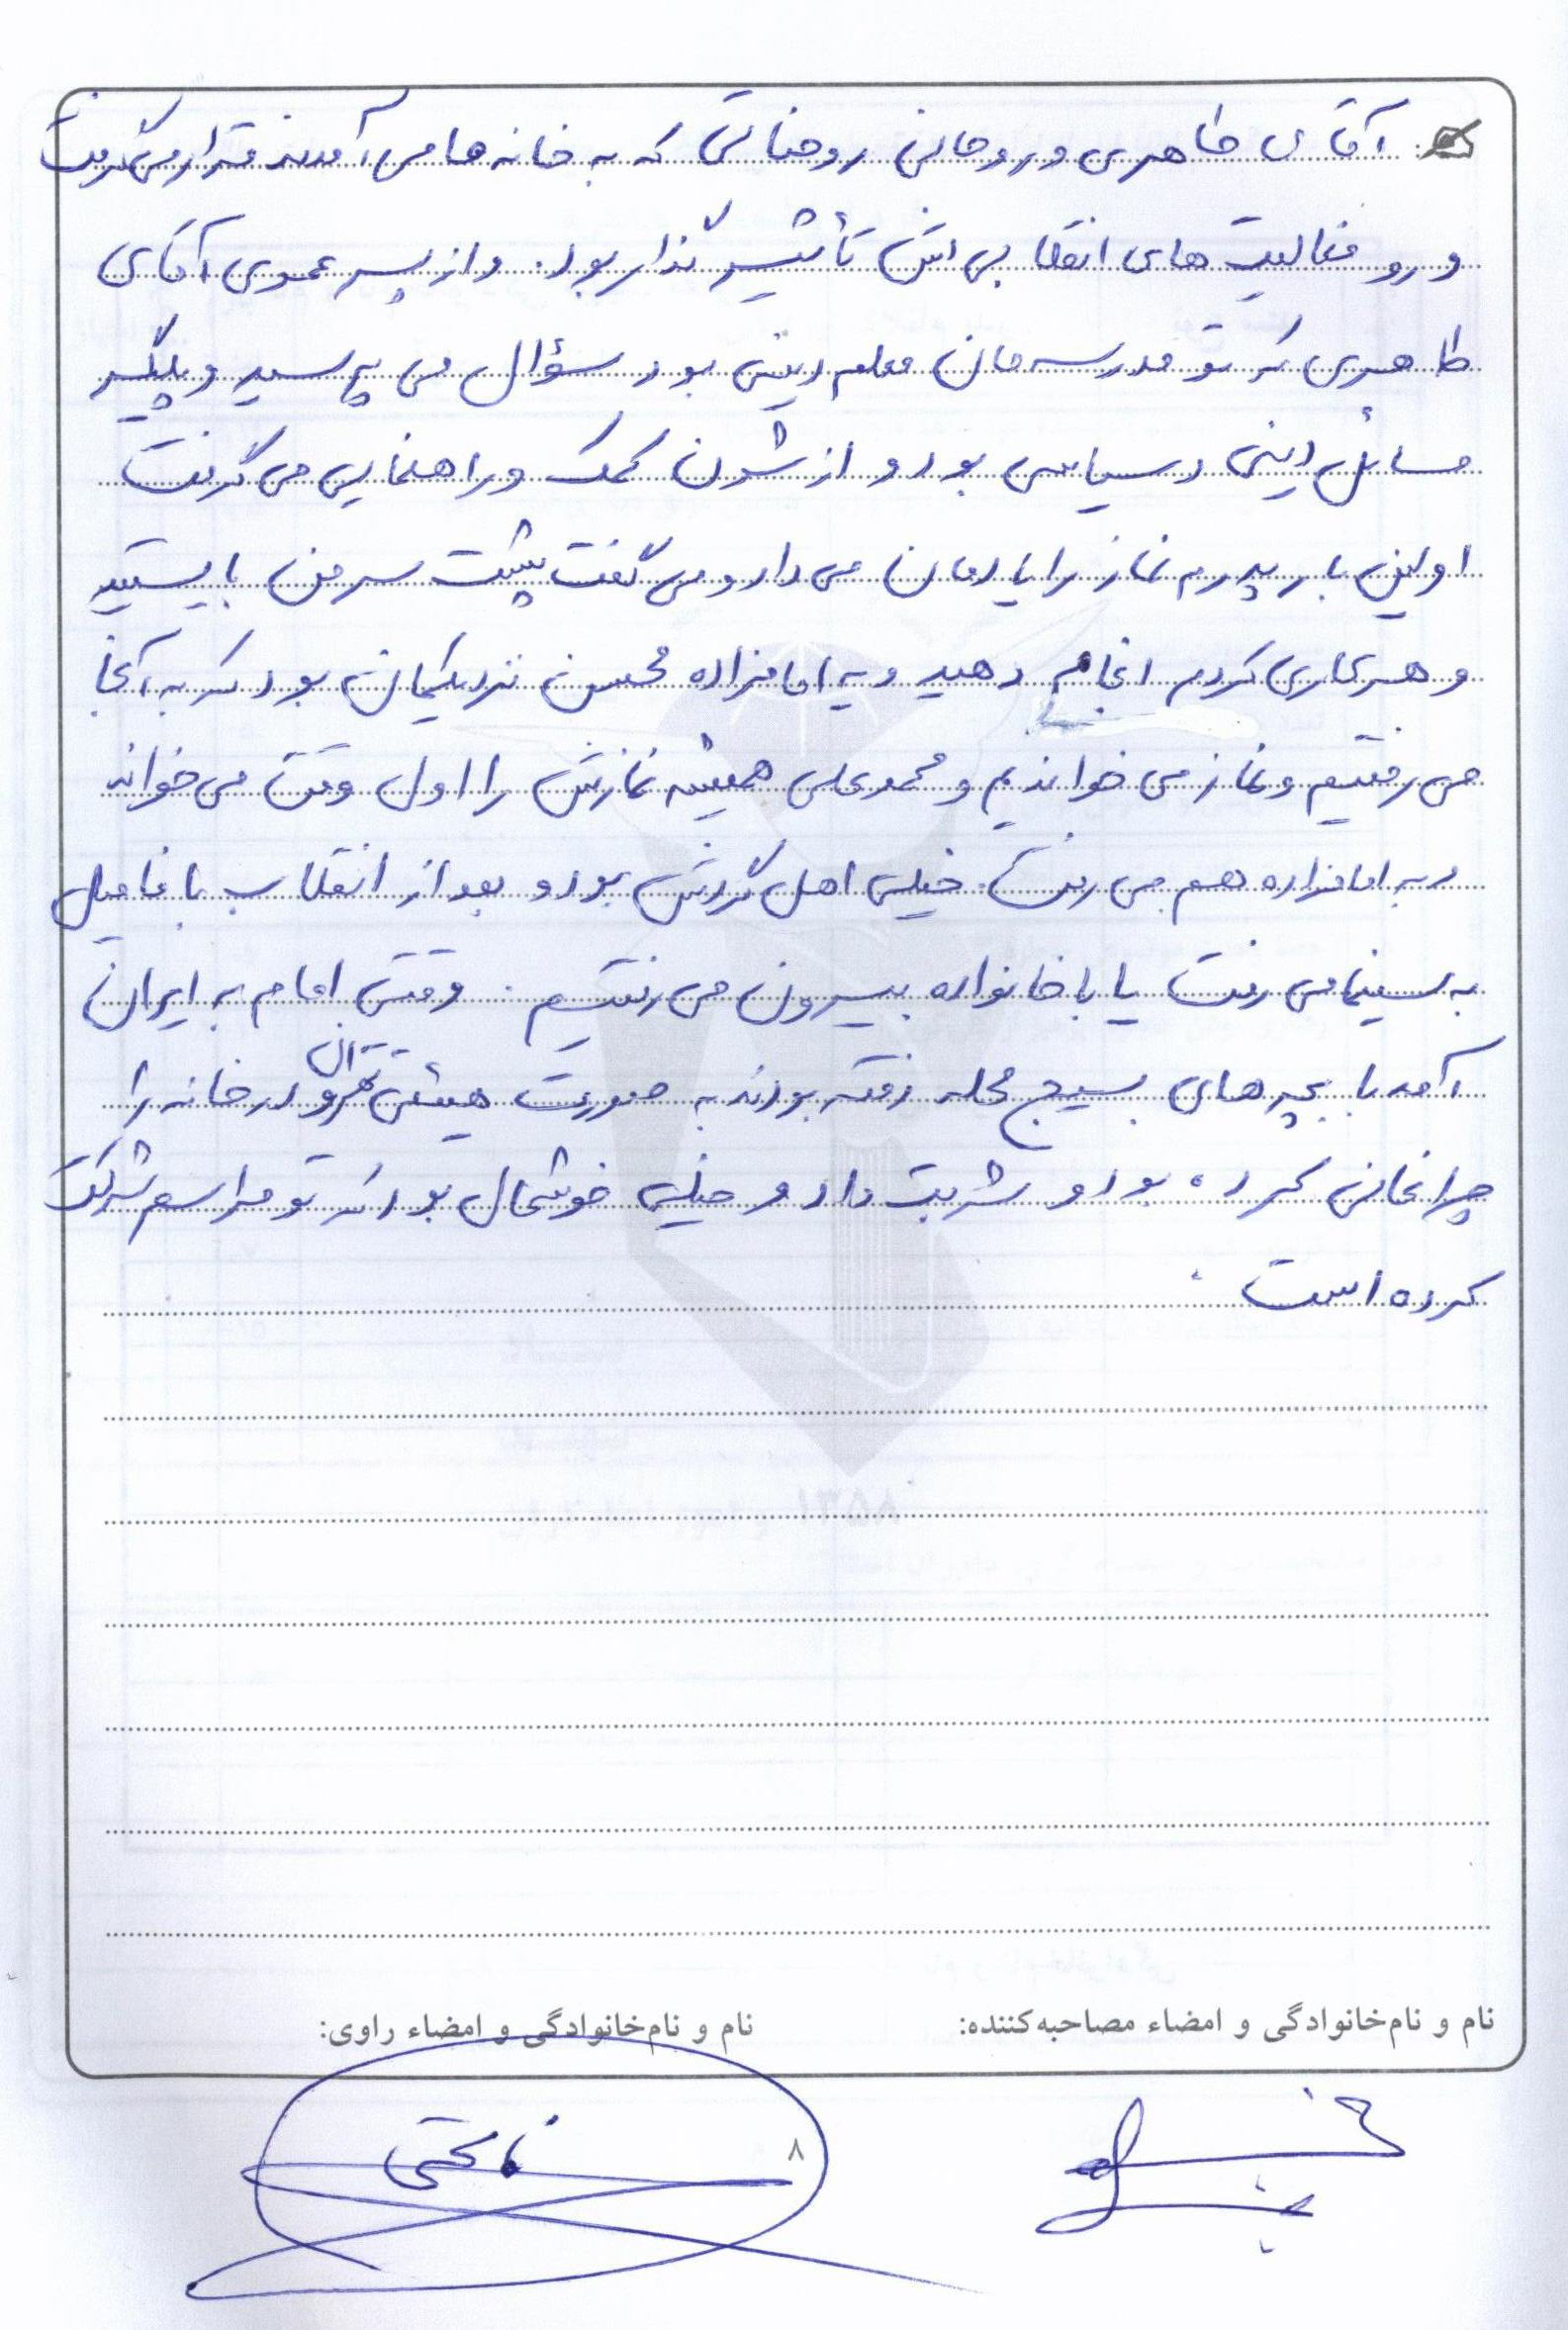 آقای طاهری و روحانی روحنانی که به خانه ها می آمدند قرار می گرفت
و رو فعالیت های انقلابی اش تأثیر گذار بود. و از پسر عموی آقای
طاهری که تو مدرسه مان معلم دینی بود سؤال می پرسید و پیگیر
مسائل دینی و سیاسی بود و ازشون کمک و راهنمایی می گرفت
اولین بار پدرم نماز را یادمان می داد و می گفت پشت سر من بایستید
و هر کاری کردم انجام دهید و یه امامزاده محسن نزدیکمان بود که به آنجا
می رفتیم و نماز می خواندیم و محمدعلی همیشه نمازش را اول وقت می خواند
و به امامزاده هم می رفت. خیلی اهل گردش بود و بعد از انقلاب با فامیل
به سینما می رفت یا با خانواده بیرون می رفتیم. وقتی امام به ایران
آمد با بچه های بسیج محله رفته بودند به صورت هیئتی تهران و در خانه را
چراغانی کرده بود و شربت داد و خیلی خوشحال بود که تو مراسم شرکت
کرده است.
نام و نام‌خانوادگی و امضاء مصاحبه‌کننده:
نام و نام‌خانوادگی و امضاء راوی:
۸